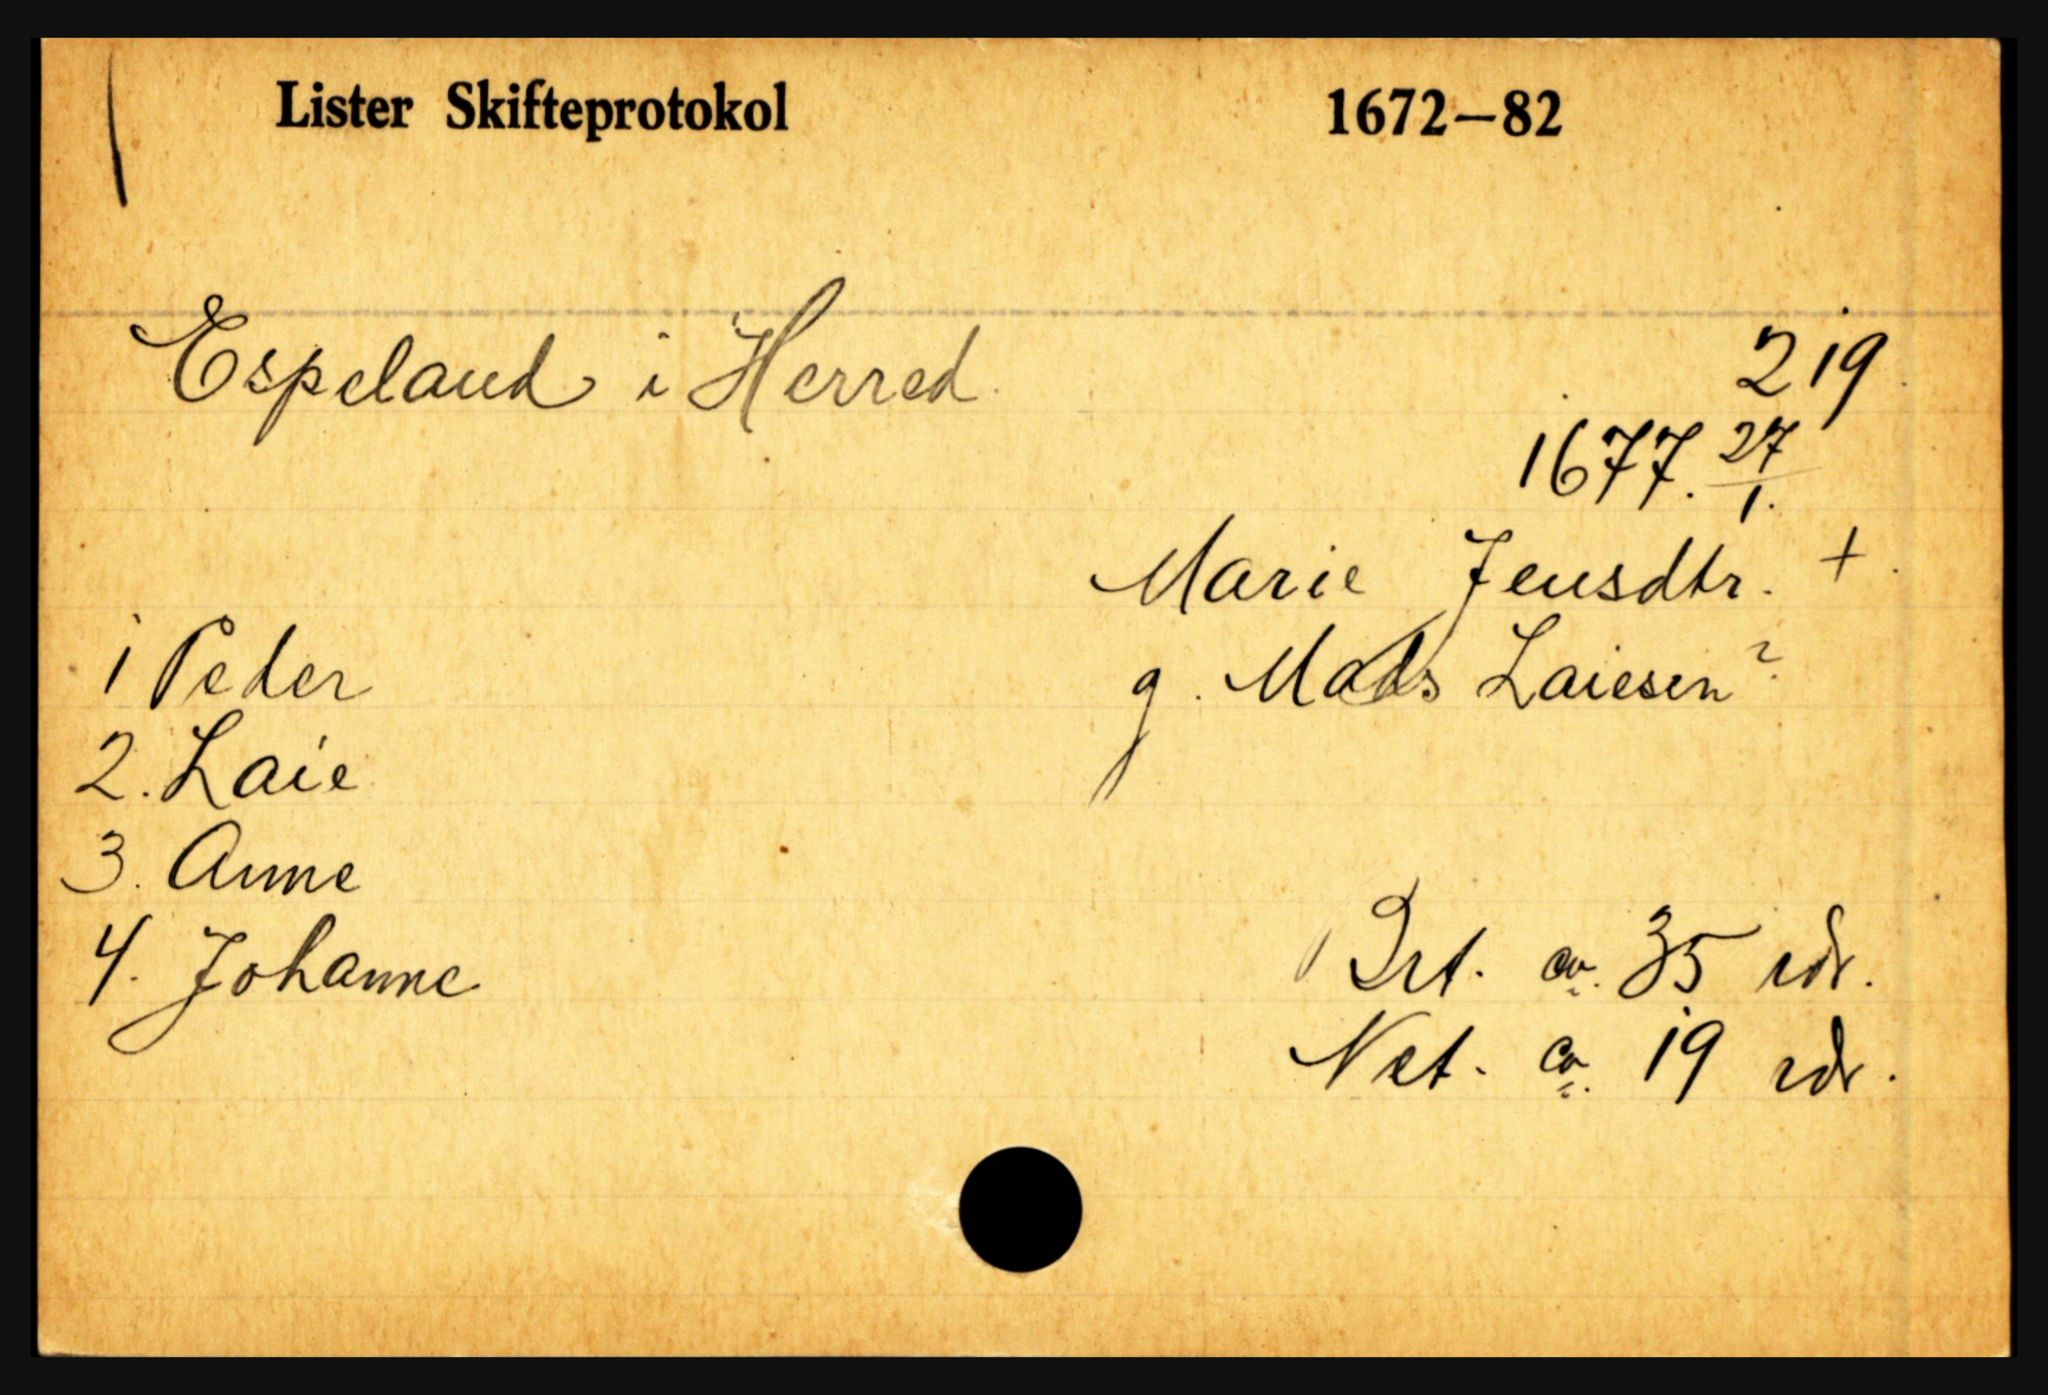 Lister Skifteprotokol 1672–82
Espeland i Herred
219
1677. 27/1.
Marie Jensdtr. +
g. Mads Laiesen?
1 Peder
2. Laie
3. Anne
4. Johanne
Brt. ca. 35 rdr.
Net. ca. 19 rdr.